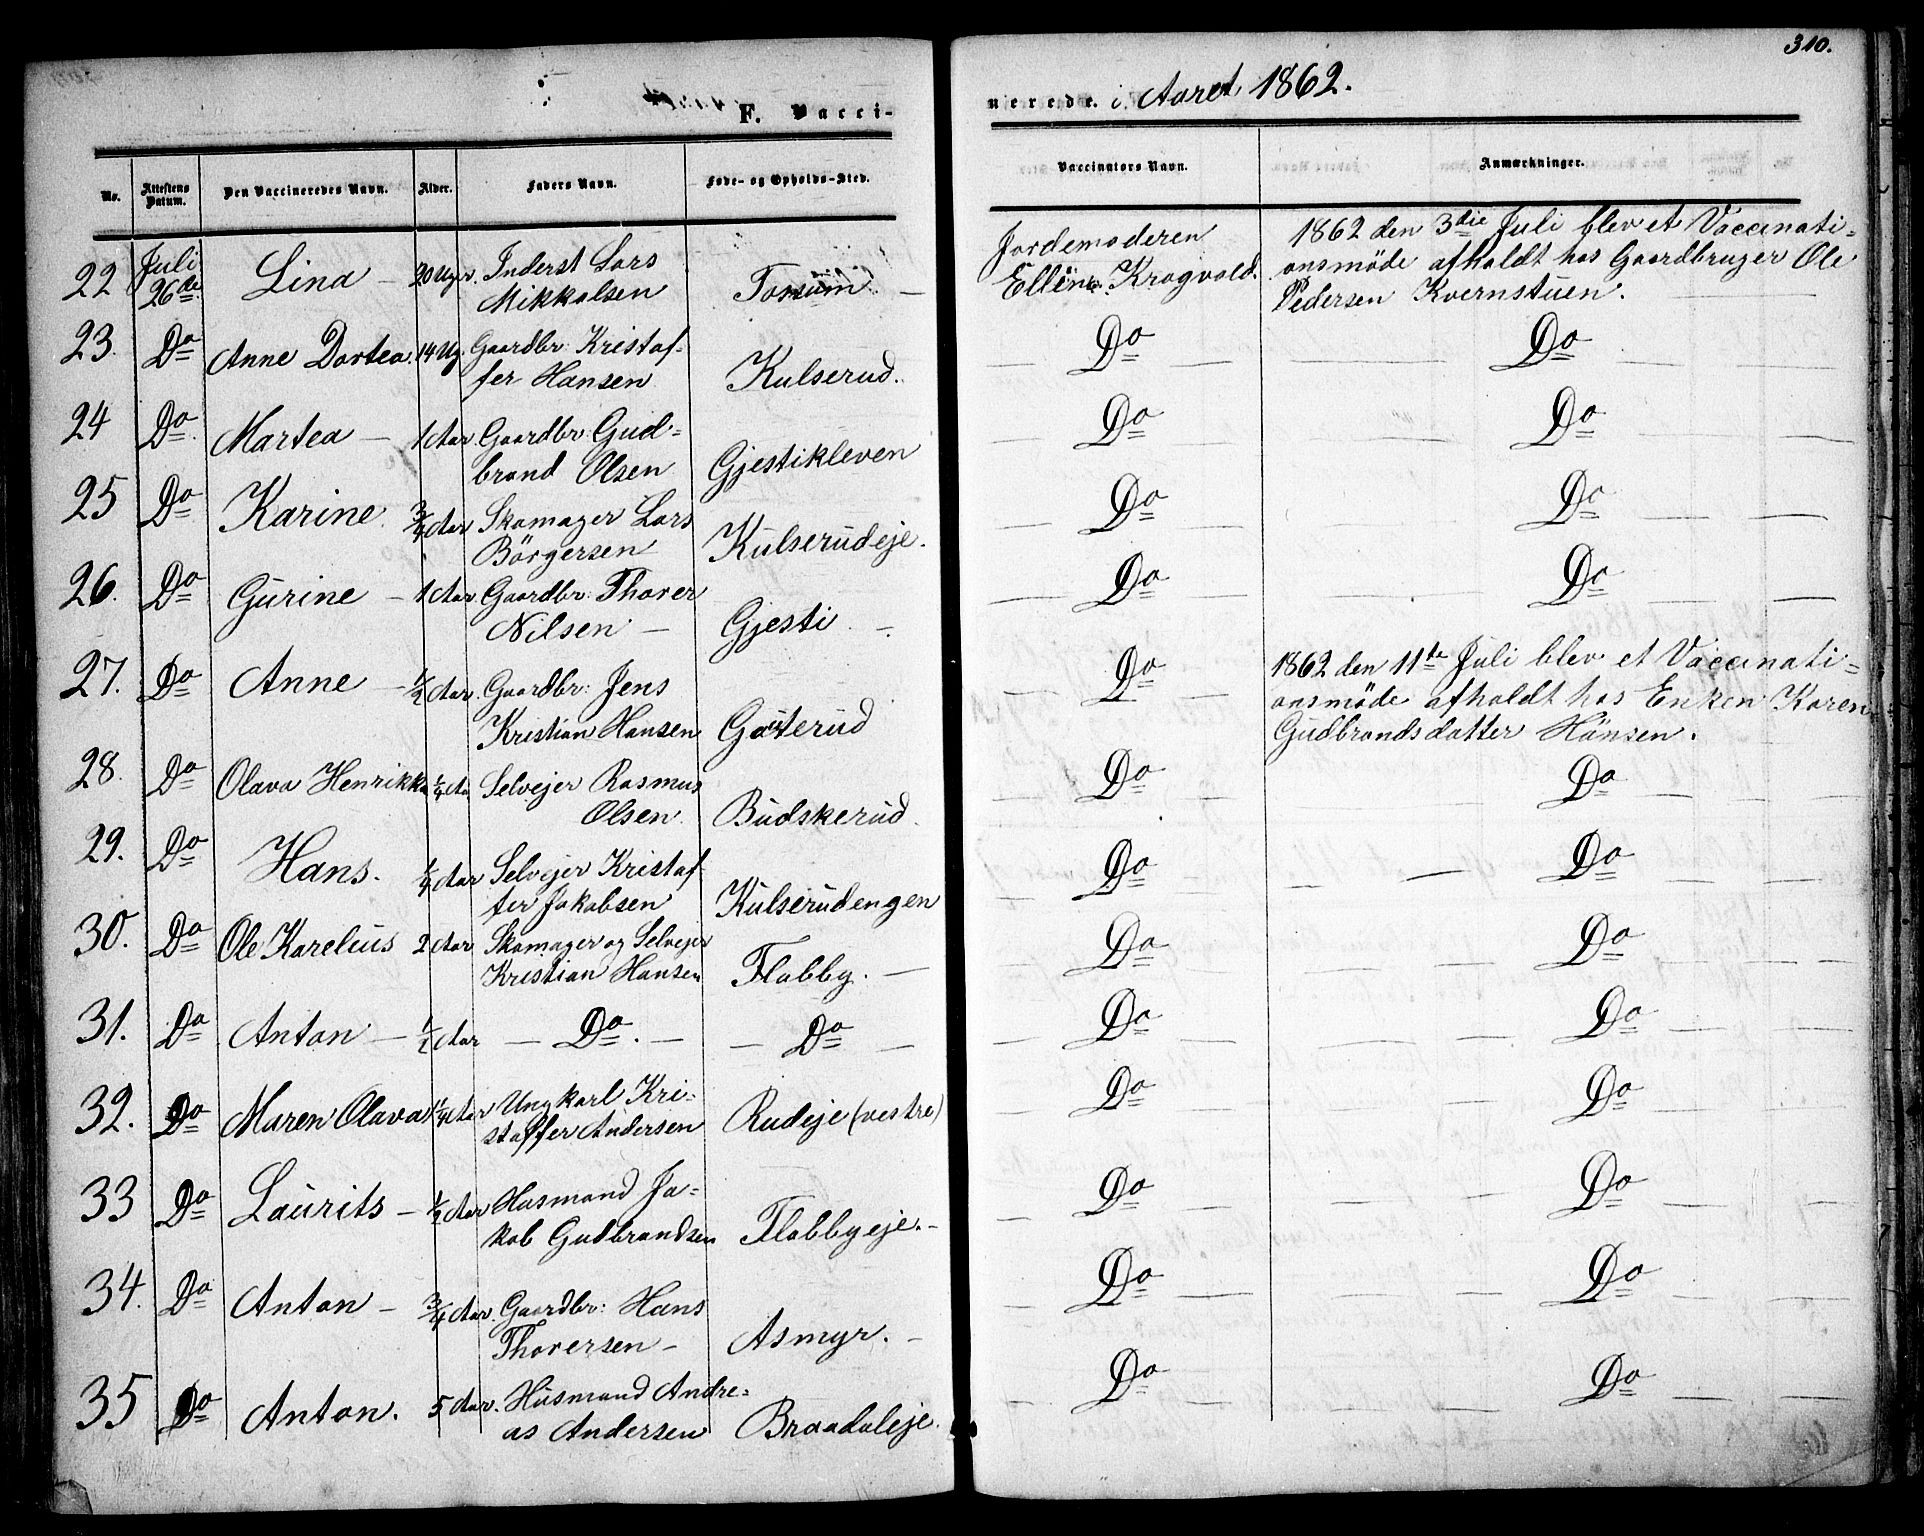 310.
F. Vacci-
nerede. i Aaret 1862.
No. | Attestens Datum. | Den Vaccineredes Navn. | Alder. | Faders Navn. | Føde- og Opholds-Sted. | Vaccinators Navn. | Anmærkninger.
22 | Juli 26de | Lina – | 20 Uger. | Inderst Lars Mikkalsen | Tossum – | Jordemoderen Elline Kragvold. | 1862 den 3die Juli blev et Vaccinati=onsmöde afholdt hos Gaardbruger Ole Pedersen Kvernstuen.
23. | Do | Anne Dortea. | 14 Ug. | Gaardbr: Kristaf-fer Hansen | Kulserud. | Do | Do
24 | Do | Martea – | 1 Aar | Gaardbr: Gud=brand Olsen | Gjestikleven | Do | Do
25 | Do | Karine. | 3/4 Aar | Skomager Lars Börgersen | Kulserudeje. | Do | Do
26. | Do | Gurine – | 1 Aar | Gaardbr: Thorer Nilsen – | Gjesti – | Do | Do
27. | Do | Anne – | 1/2 Aar. | Gaardbr: Jens Kristian Hansen | Gauterud | Do | 1862 den 11te Juli blev et Vaccinati=onsmöde afholdt hos Enken Karen Gudbrandsdatter Hönsen.
28. | Do | Olava Henrikka | 1/4 Aa | Selvejer Rasmus Olsen. | Budskerud. | Do | Do
29. | Do | Hans. | 1/4 Aar | Selvejer Kristaf-fer Jakobsen | Kulserudengen | Do | Do
30. | Do | Ole Karelius | 2 Aar | Skomager og Selvejer Kristian Hansen | Flabby. – | Do | Do
31. | Do | Anton – | 1/2 Aar | – Do. – | – Do – | Do | Do
32. | Do | Maren Olava | 1/4 Aar | Ungkarl Kri=staffer Andersen | Rudeje (vestre) | Do | Do
33 | Do | Laurits – | 1/2 Aar | Husmand Ja=kob Gudbrandsen | Flabbyeje. – | Do | Do
34. | Do | Anton – | 3/4 Aar. | Gaardbr: Hans Thorersen – | Asmyr. – | Do | Do
35 | Do | Anton. | 5 Aar. | Husmand Andre=as Andersen | Braadaleje. | Do | Do